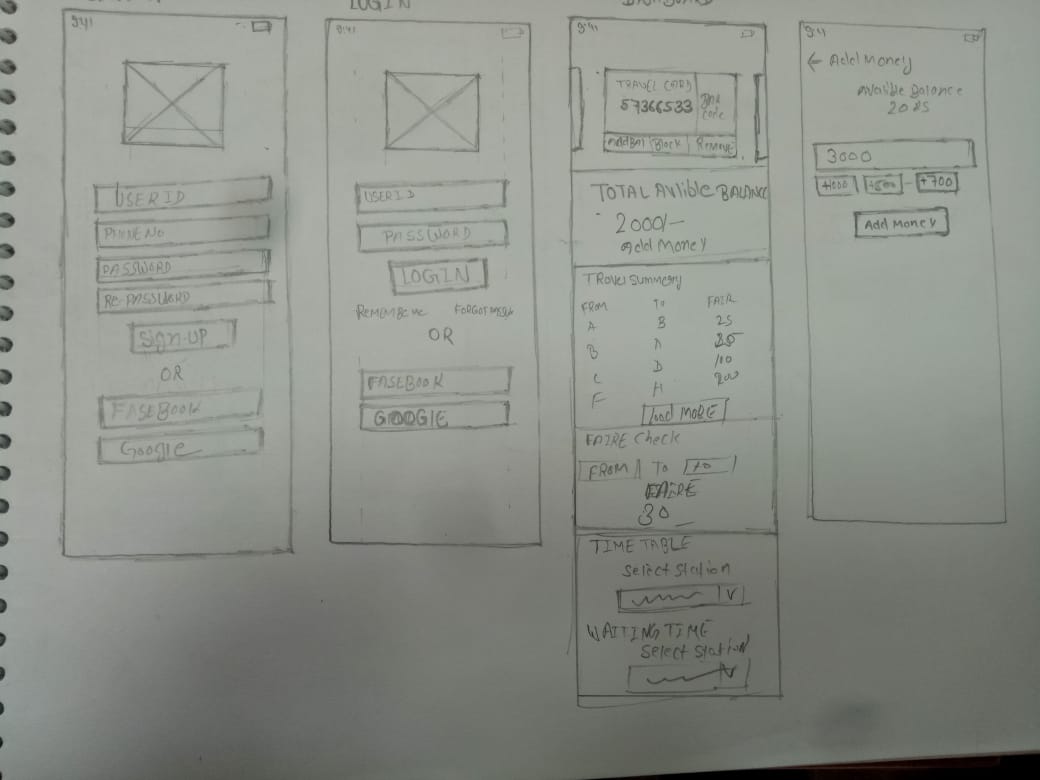 LOGIN
DASHBOARD
9:41
USER ID
PHONE NO
PASSWORD
RE-PASSWORD
Sign-UP
OR
FASEBOOK
Google
9:41
USER ID
PASSWORD
LOGIN
REMEMBE ME
OR
FASEBOOK
GOOGlE
9:41
TRAVEL CARD
57366533
BAR
Code
Add Bal
Block
Remove
TOTAL Avlible BALANCE
2000/-
Add Money
Travel Summery
FROM To FAIR
A B 25
B A
C D 100
F H 200
load MORE
FAIRE Check
FROM To to
FAIRE
30
TIME TABLE
Select Station
V
WAITING TIME
Select Station
V
9:41
← Add Money
Avalible Balance
2025
3000
+1000 +500 - +700
Add Money